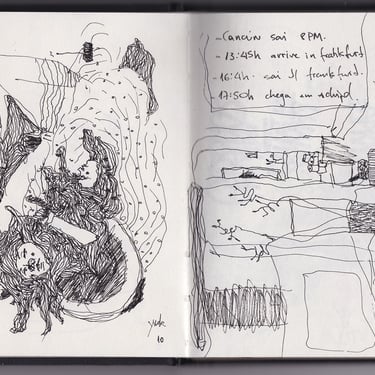 - Cancún sai 8PM.
- 13:45h arrive in frankfurt
- 16:4h. sai d frankfurt.
17:50h chega em
10